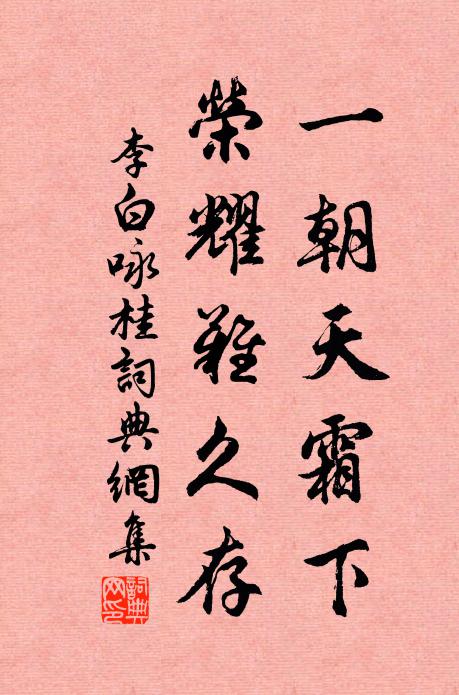 一朝天霜下
榮耀難久存
李白咏桂詞典網集
詞典
网印